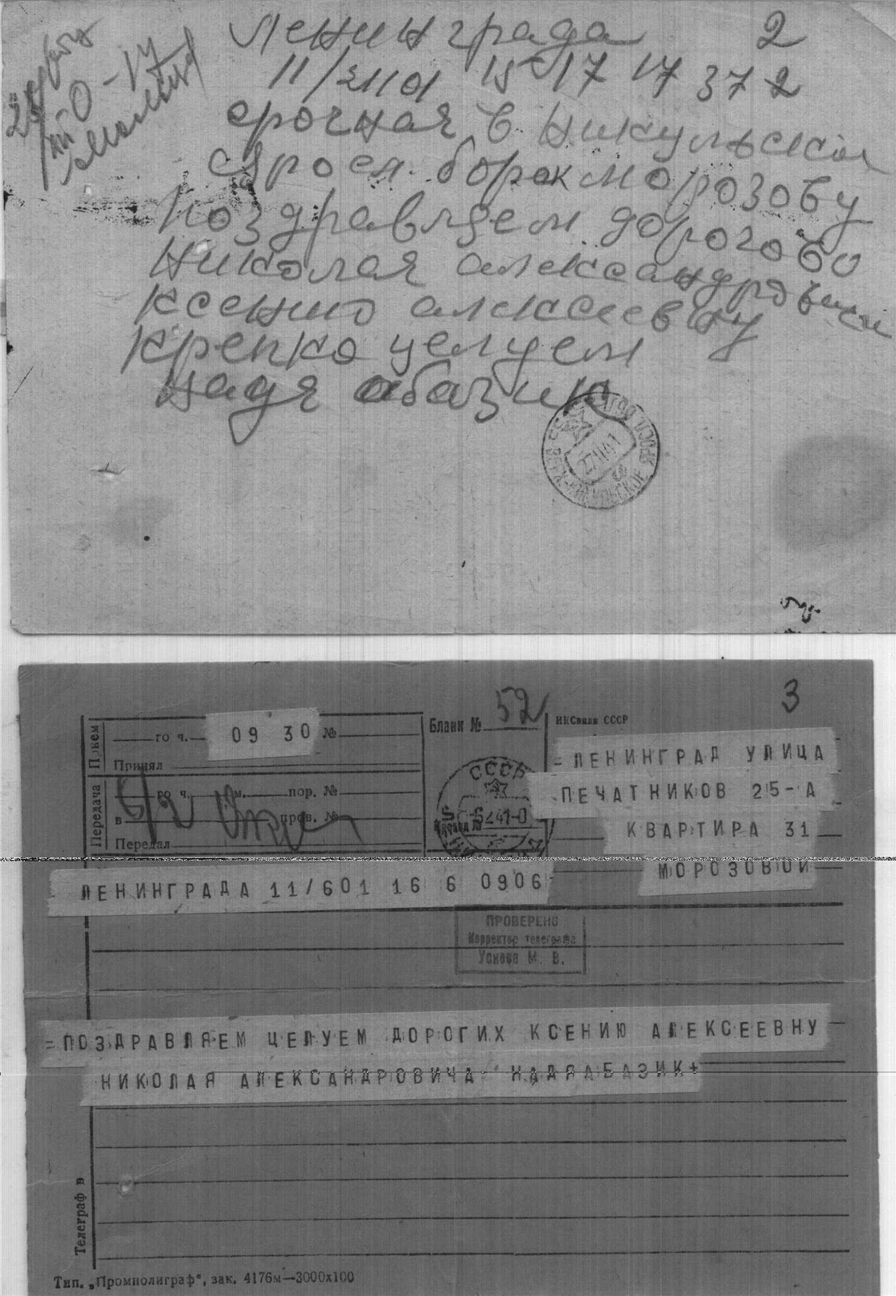 Ленинграда 2
11/2101 15 17 17 37 2
срочная в. Никульское
Яросл. борок Морозову
поздравляем дорогово
николая александровича
ксению алексеевну
крепко целуем
надя абазик
3
го ч. 09 30 №
Принял
Бланк № 52
НКСвязи СССР
Передача
го ч. м. пор. №
в пров. №
Передал
6/2
СССР
=ЛЕНИНГРАД УЛИЦА
ПЕЧАТНИКОВ 25-А
КВАРТИРА 31
МОРОЗОВОЙ
ЛЕНИНГРАДА 11/601 16 6 0906
ПРОВЕРЕНО
Корректор телеграмм
Ускова М. В.
=ПОЗДРАВЛЯЕМ ЦЕЛУЕМ ДОРОГИХ КСЕНИЮ АЛЕКСЕЕВНУ
НИКОЛАЯ АЛЕКСАНДРОВИЧА НАДЯАБАЗИК+
Телеграф в
Тип. „Промполиграф", зак. 4176м—3000х100